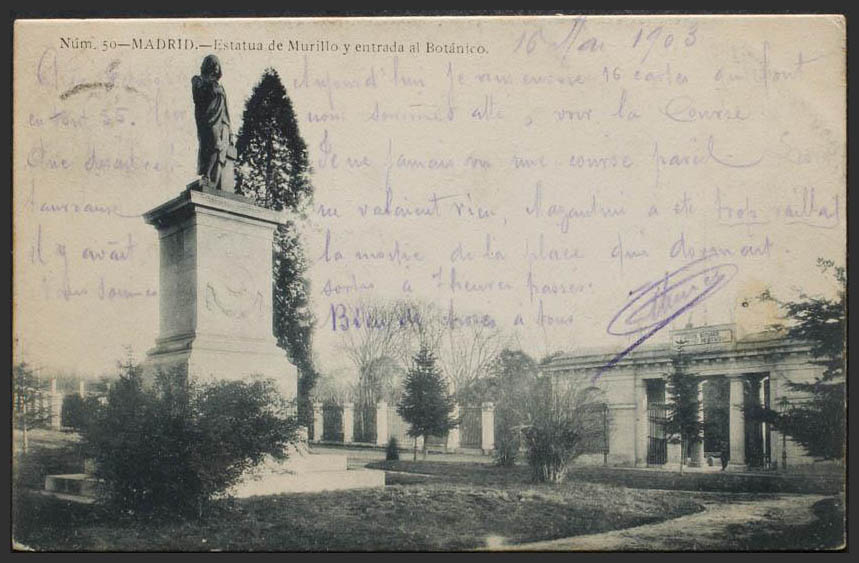 Núm. 50—MADRID.—Estatua de Murillo y entrada al Botánico.
16 Mai 1903
Aujourd'hui je vous envoie 16 cartes qui font
en tout 55. nous sommes allé, voir la Course
Que Je ne jamais vu une course pareil
Taureaux ne valaient rien, Mazantini a été trop
il y avait la moitié de la place qui dormait.
Nous sommes sortis à 7 heures passés.
Bien de choses à tous